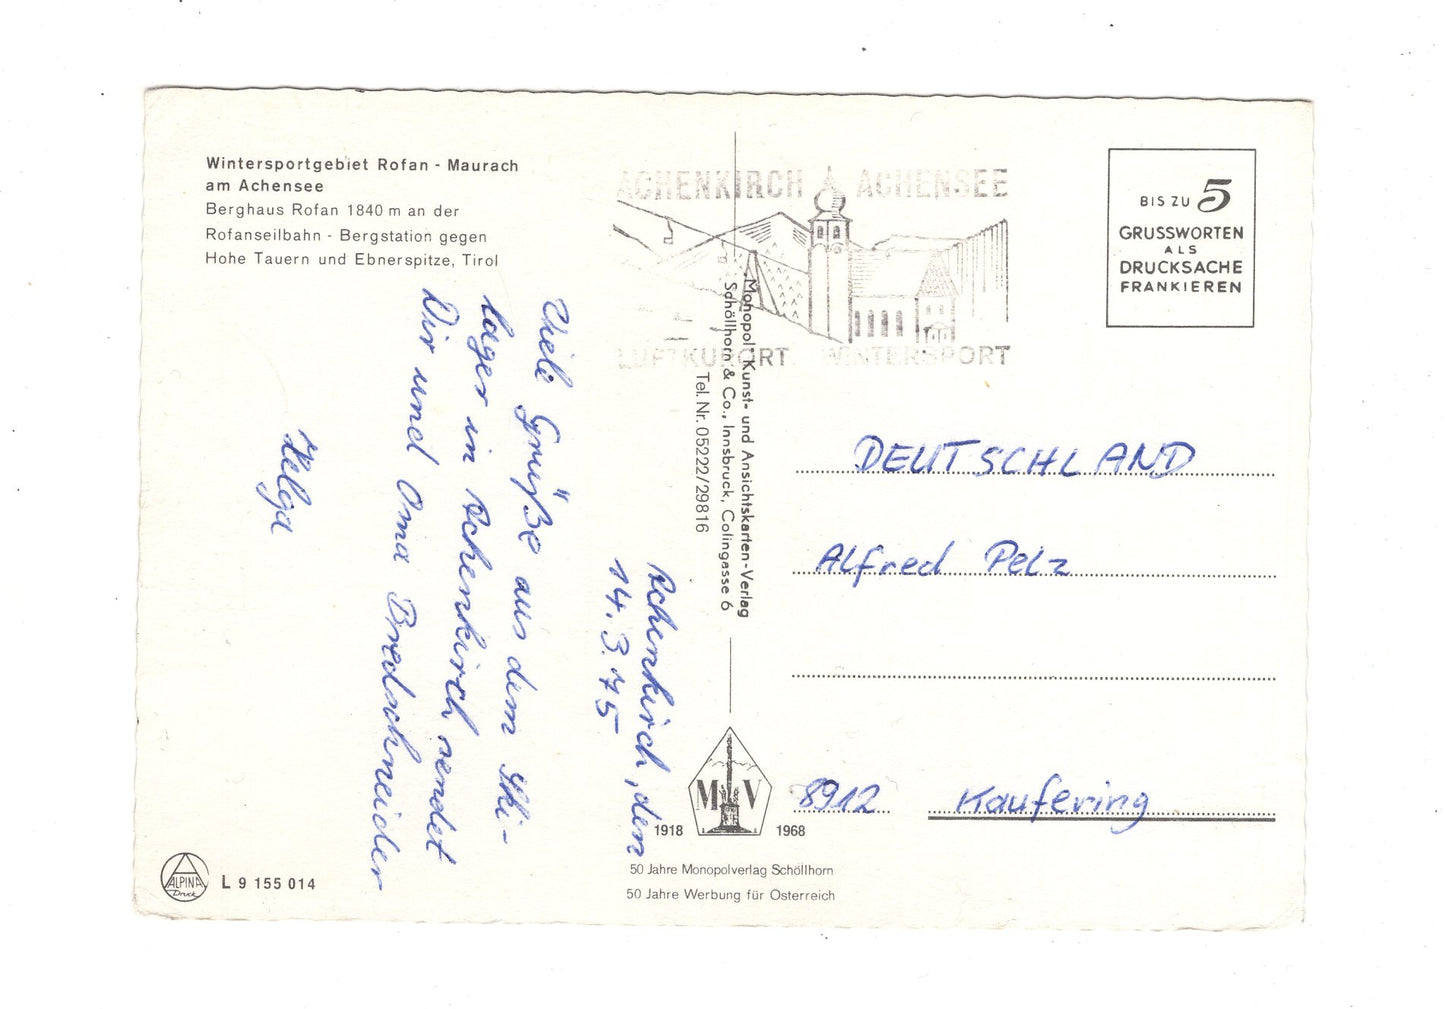 Wintersportgebiet Rofan - Maurach
am Achensee
Berghaus Rofan 1840 m an der
Rofanseilbahn - Bergstation gegen
Hohe Tauern und Ebnerspitze, Tirol
ACHENKIRCH ACHENSEE
LUFTKURORT WINTERSPORT
BIS ZU 5
GRUSSWORTEN
ALS
DRUCKSACHE
FRANKIEREN
Achenkirch, den
14.3.75
Viele Grüße aus dem Ski-
lager in Achenkirch sendet
Dir und Oma Bredschneider
Helga
Monopol Kunst- und Ansichtskarten-Verlag
Schöllhorn & Co., Innsbruck, Colingasse 6
Tel. Nr. 05222/29816
DEUTSCHLAND
Alfred Pelz
8912 Kaufering
M V
1918 1968
50 Jahre Monopolverlag Schöllhorn
50 Jahre Werbung für Österreich
ALPINA
Druck
L 9 155 014